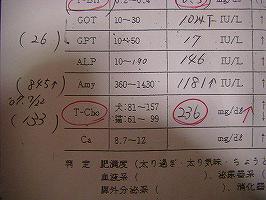 GOT 10～30 104↑ IU/L
(26) GPT 10～50 17 IU/L
ALP 10～190 146 IU/L
(845↑) Amy 360～1430 1181↑ IU/L
(133) T-Cho 犬:81～157 猫:61～99 236 mg/dℓ ↑
Ca 8.7～12 mg/dℓ
判 定 肥満度 (太り過ぎ・太り気味・ちょうど
血液系 ( )、泌尿器系 (
脚外分泌系 ( )、消化器